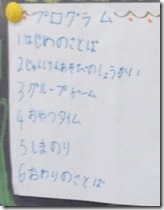 プログラム
1 はじめのことば
2 じゃんけんあそびのしょうかい
3 グループゲーム
4 おやつタイム
5 しまのり
6 おわりのことば